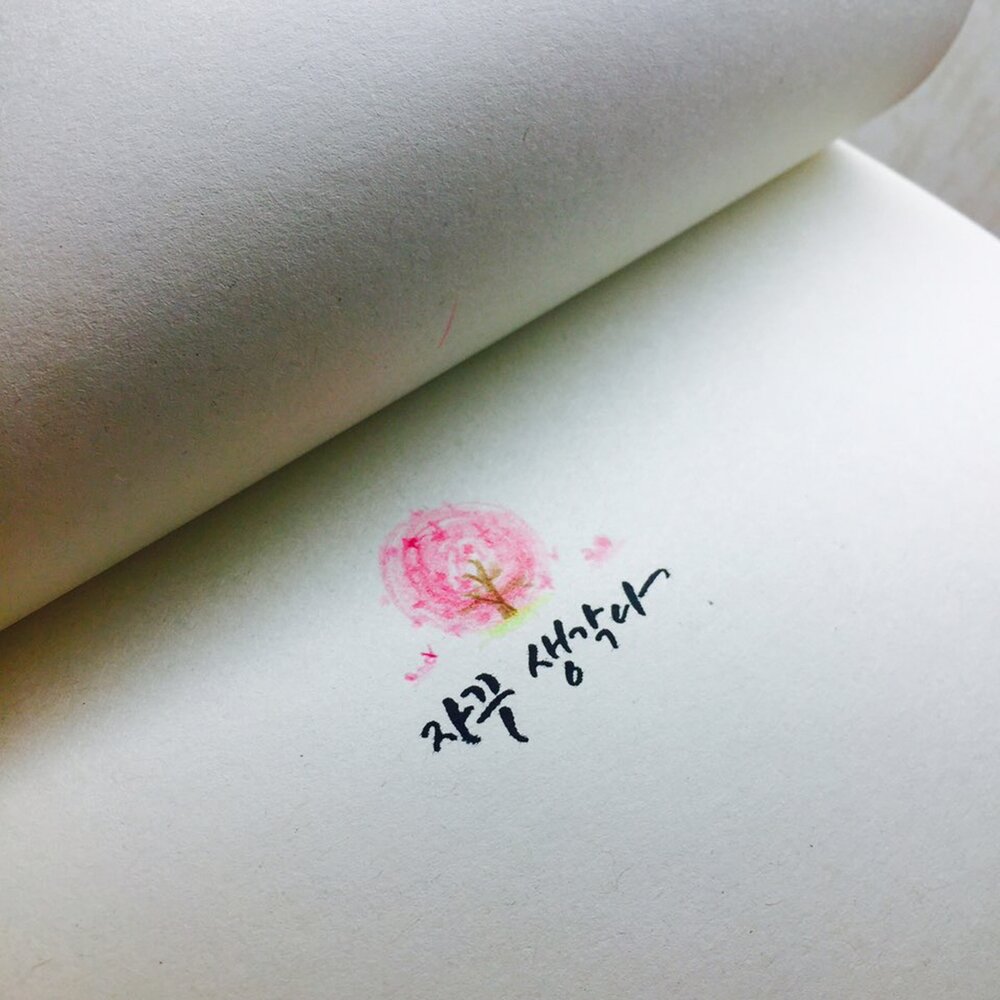 자꾸 생각나